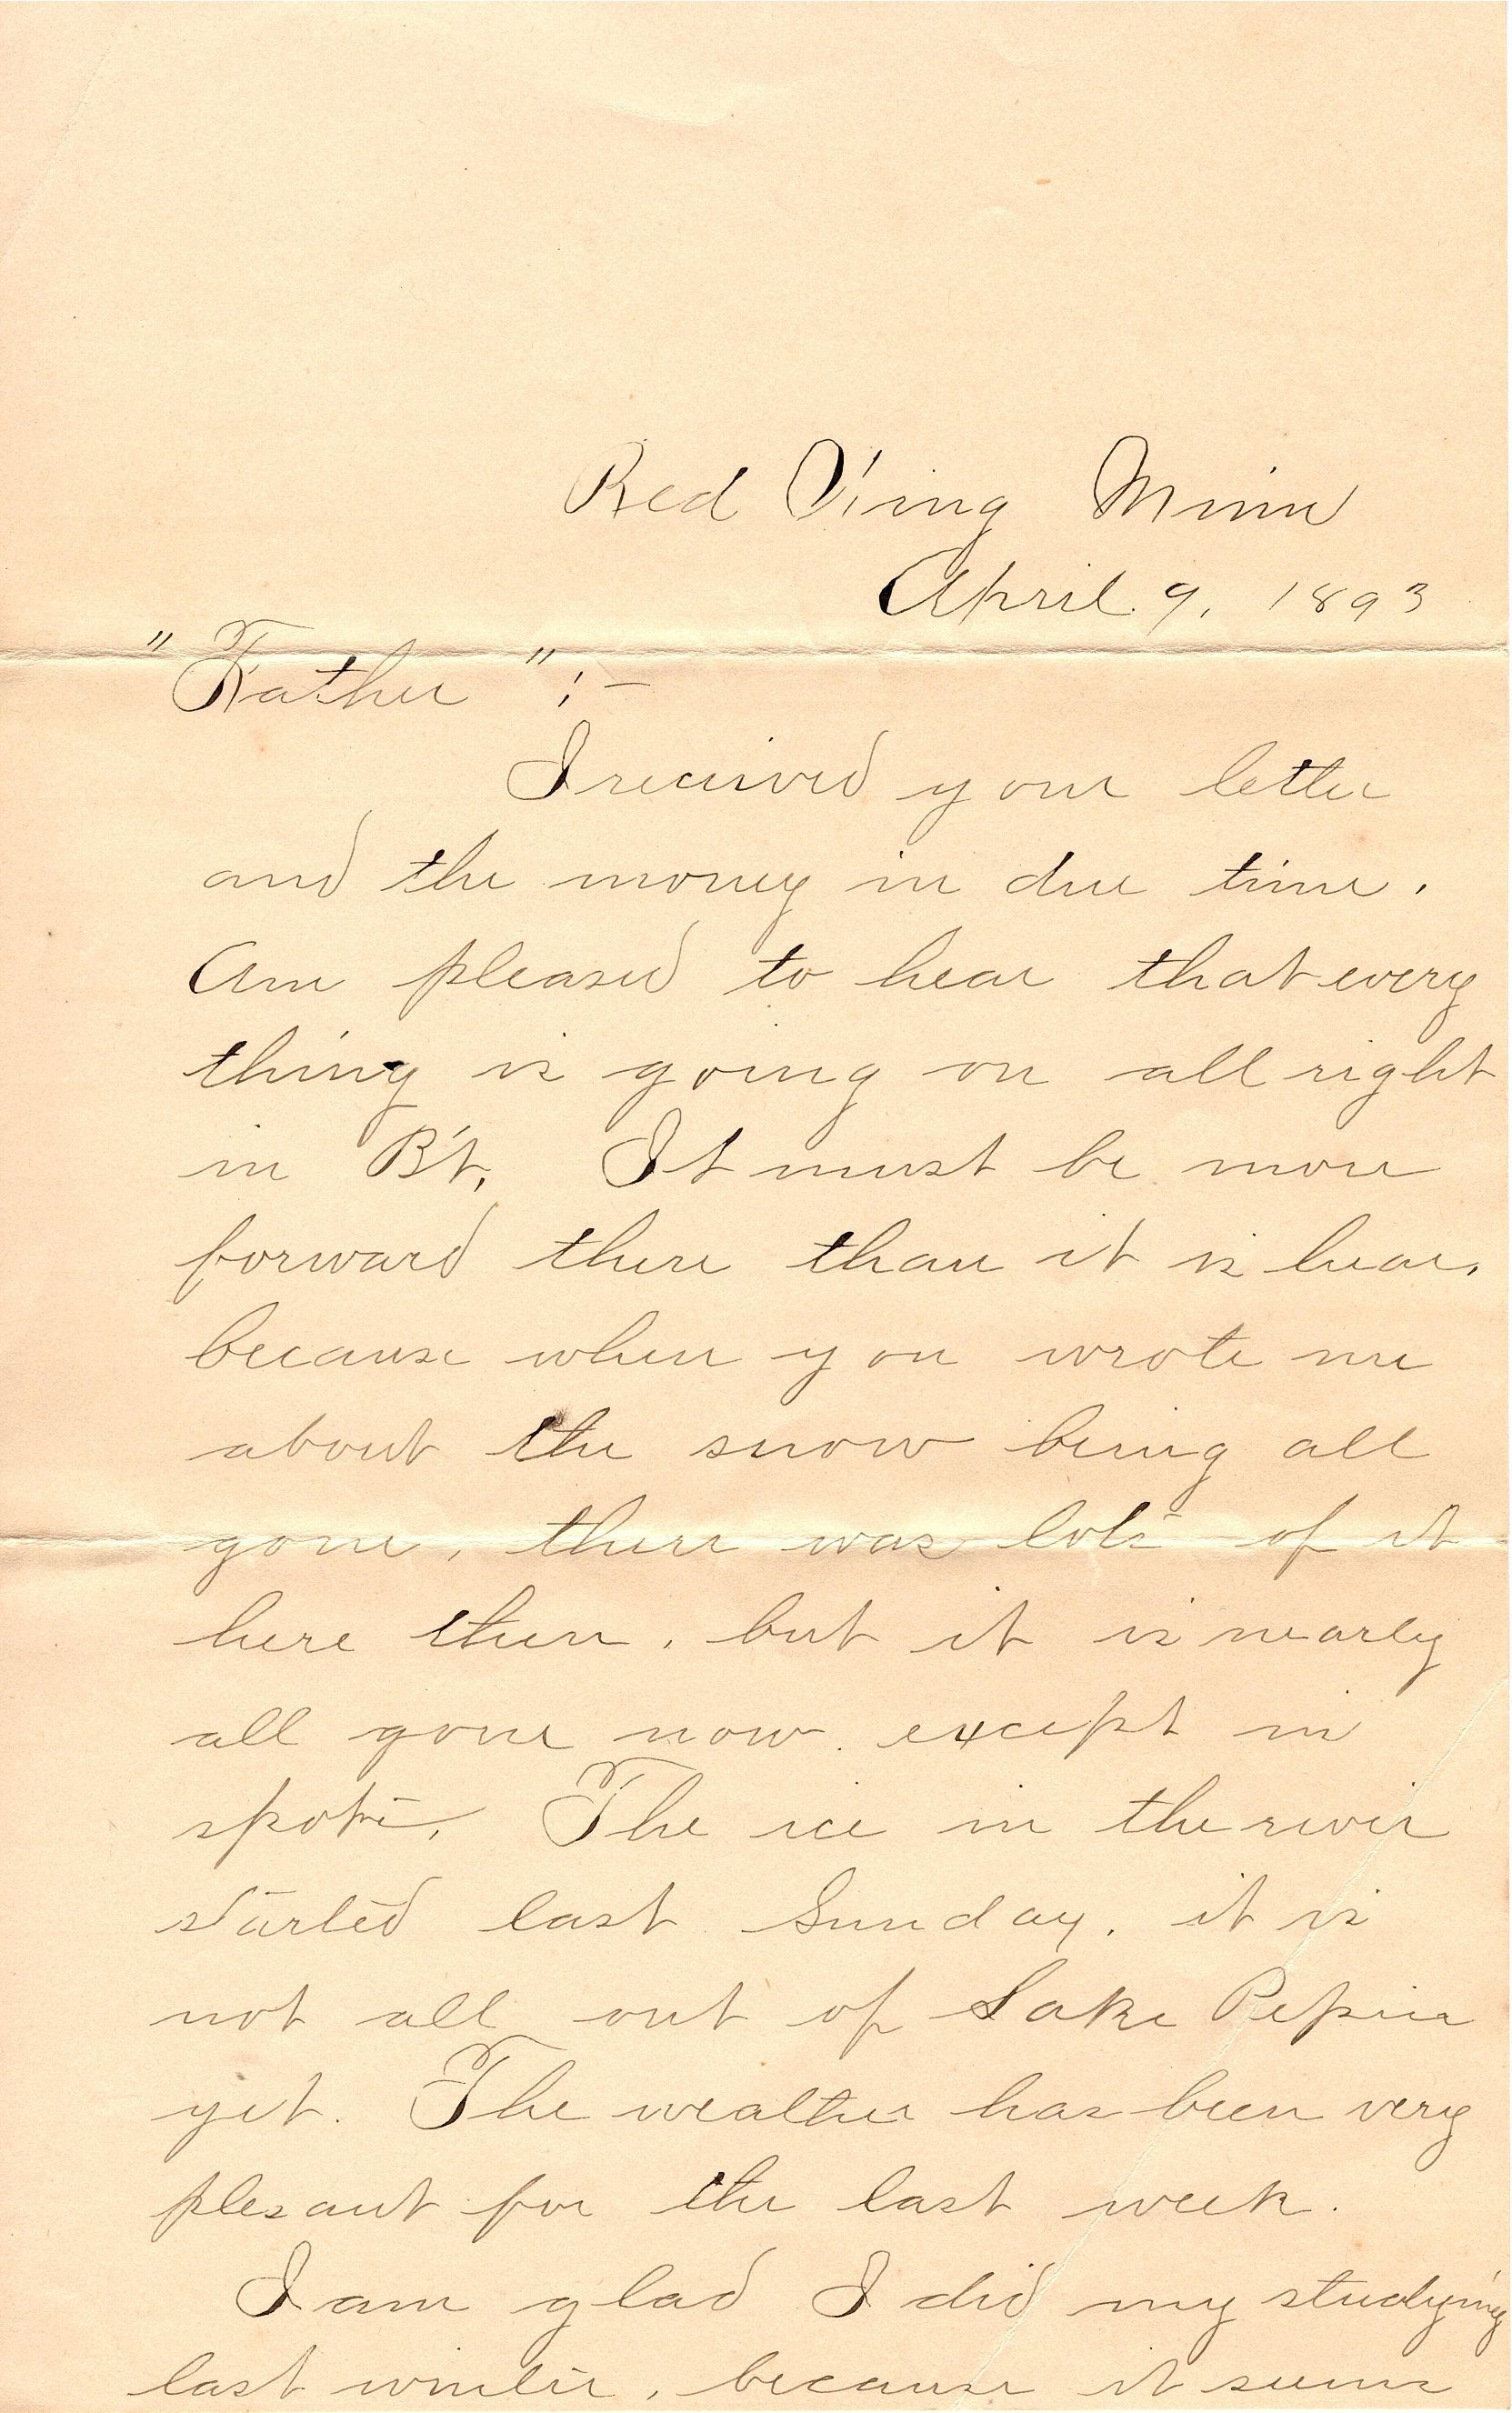 Red Wing Minn
April 9, 1893
"Father":-
I received your letter
and the money in due time.
Am pleased to hear that every
thing is going on all right
in B't. It must be more
forward there than it is hear,
because when you wrote me
about the snow being all
gone, there was lots of it
here then, but it is nearly
all gone now except in
spots. The ice in the river
started last Sunday, it is
not all out of Lake Pepin
yet. The weather has been very
plesant for the last week.
I am glad I did my studying
last winter, because it seems